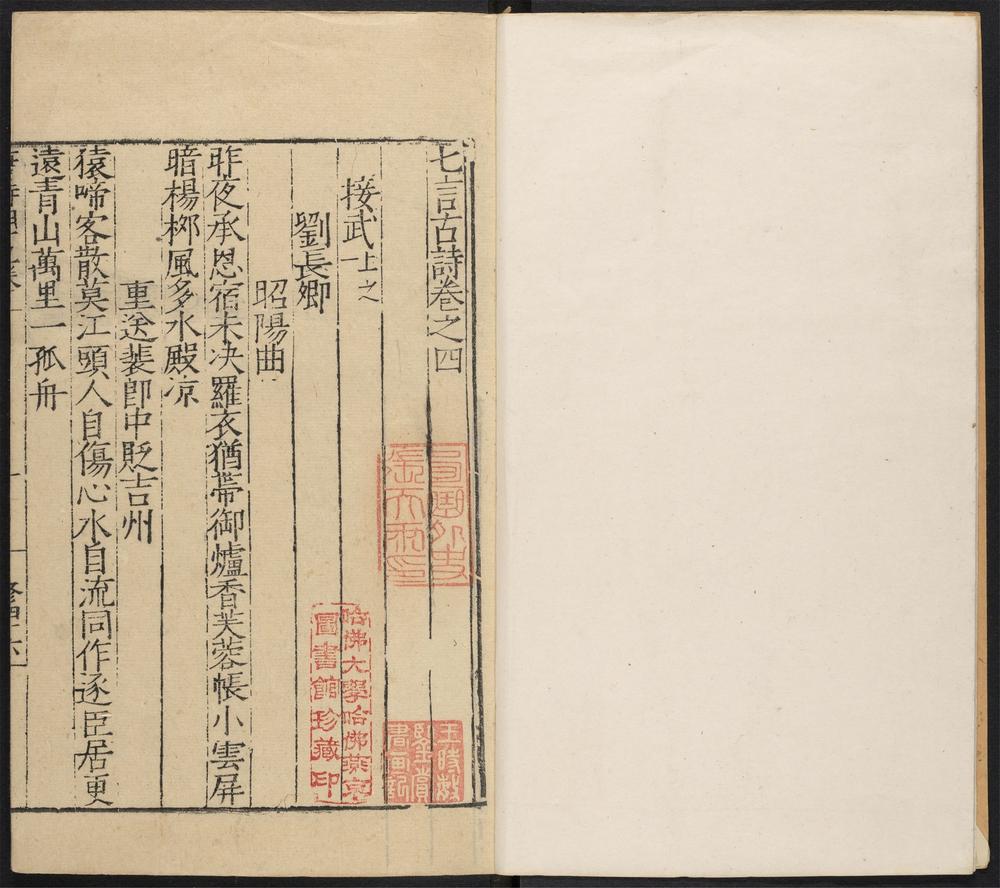 七言古詩卷之四
接武上之一
劉長卿
昭陽曲
昨夜承恩宿未决羅衣猶帶御爐香芙蓉帳小雲屏
暗楊栁風多水殿凉
重送裴郎中貶吉州
猿啼客散莫江頭人自傷心水自流同作逐臣居更
遠青山萬里一孤舟
哈佛大學哈佛燕京
圖書館珍藏印
王時敏
鑒賞
書畫記